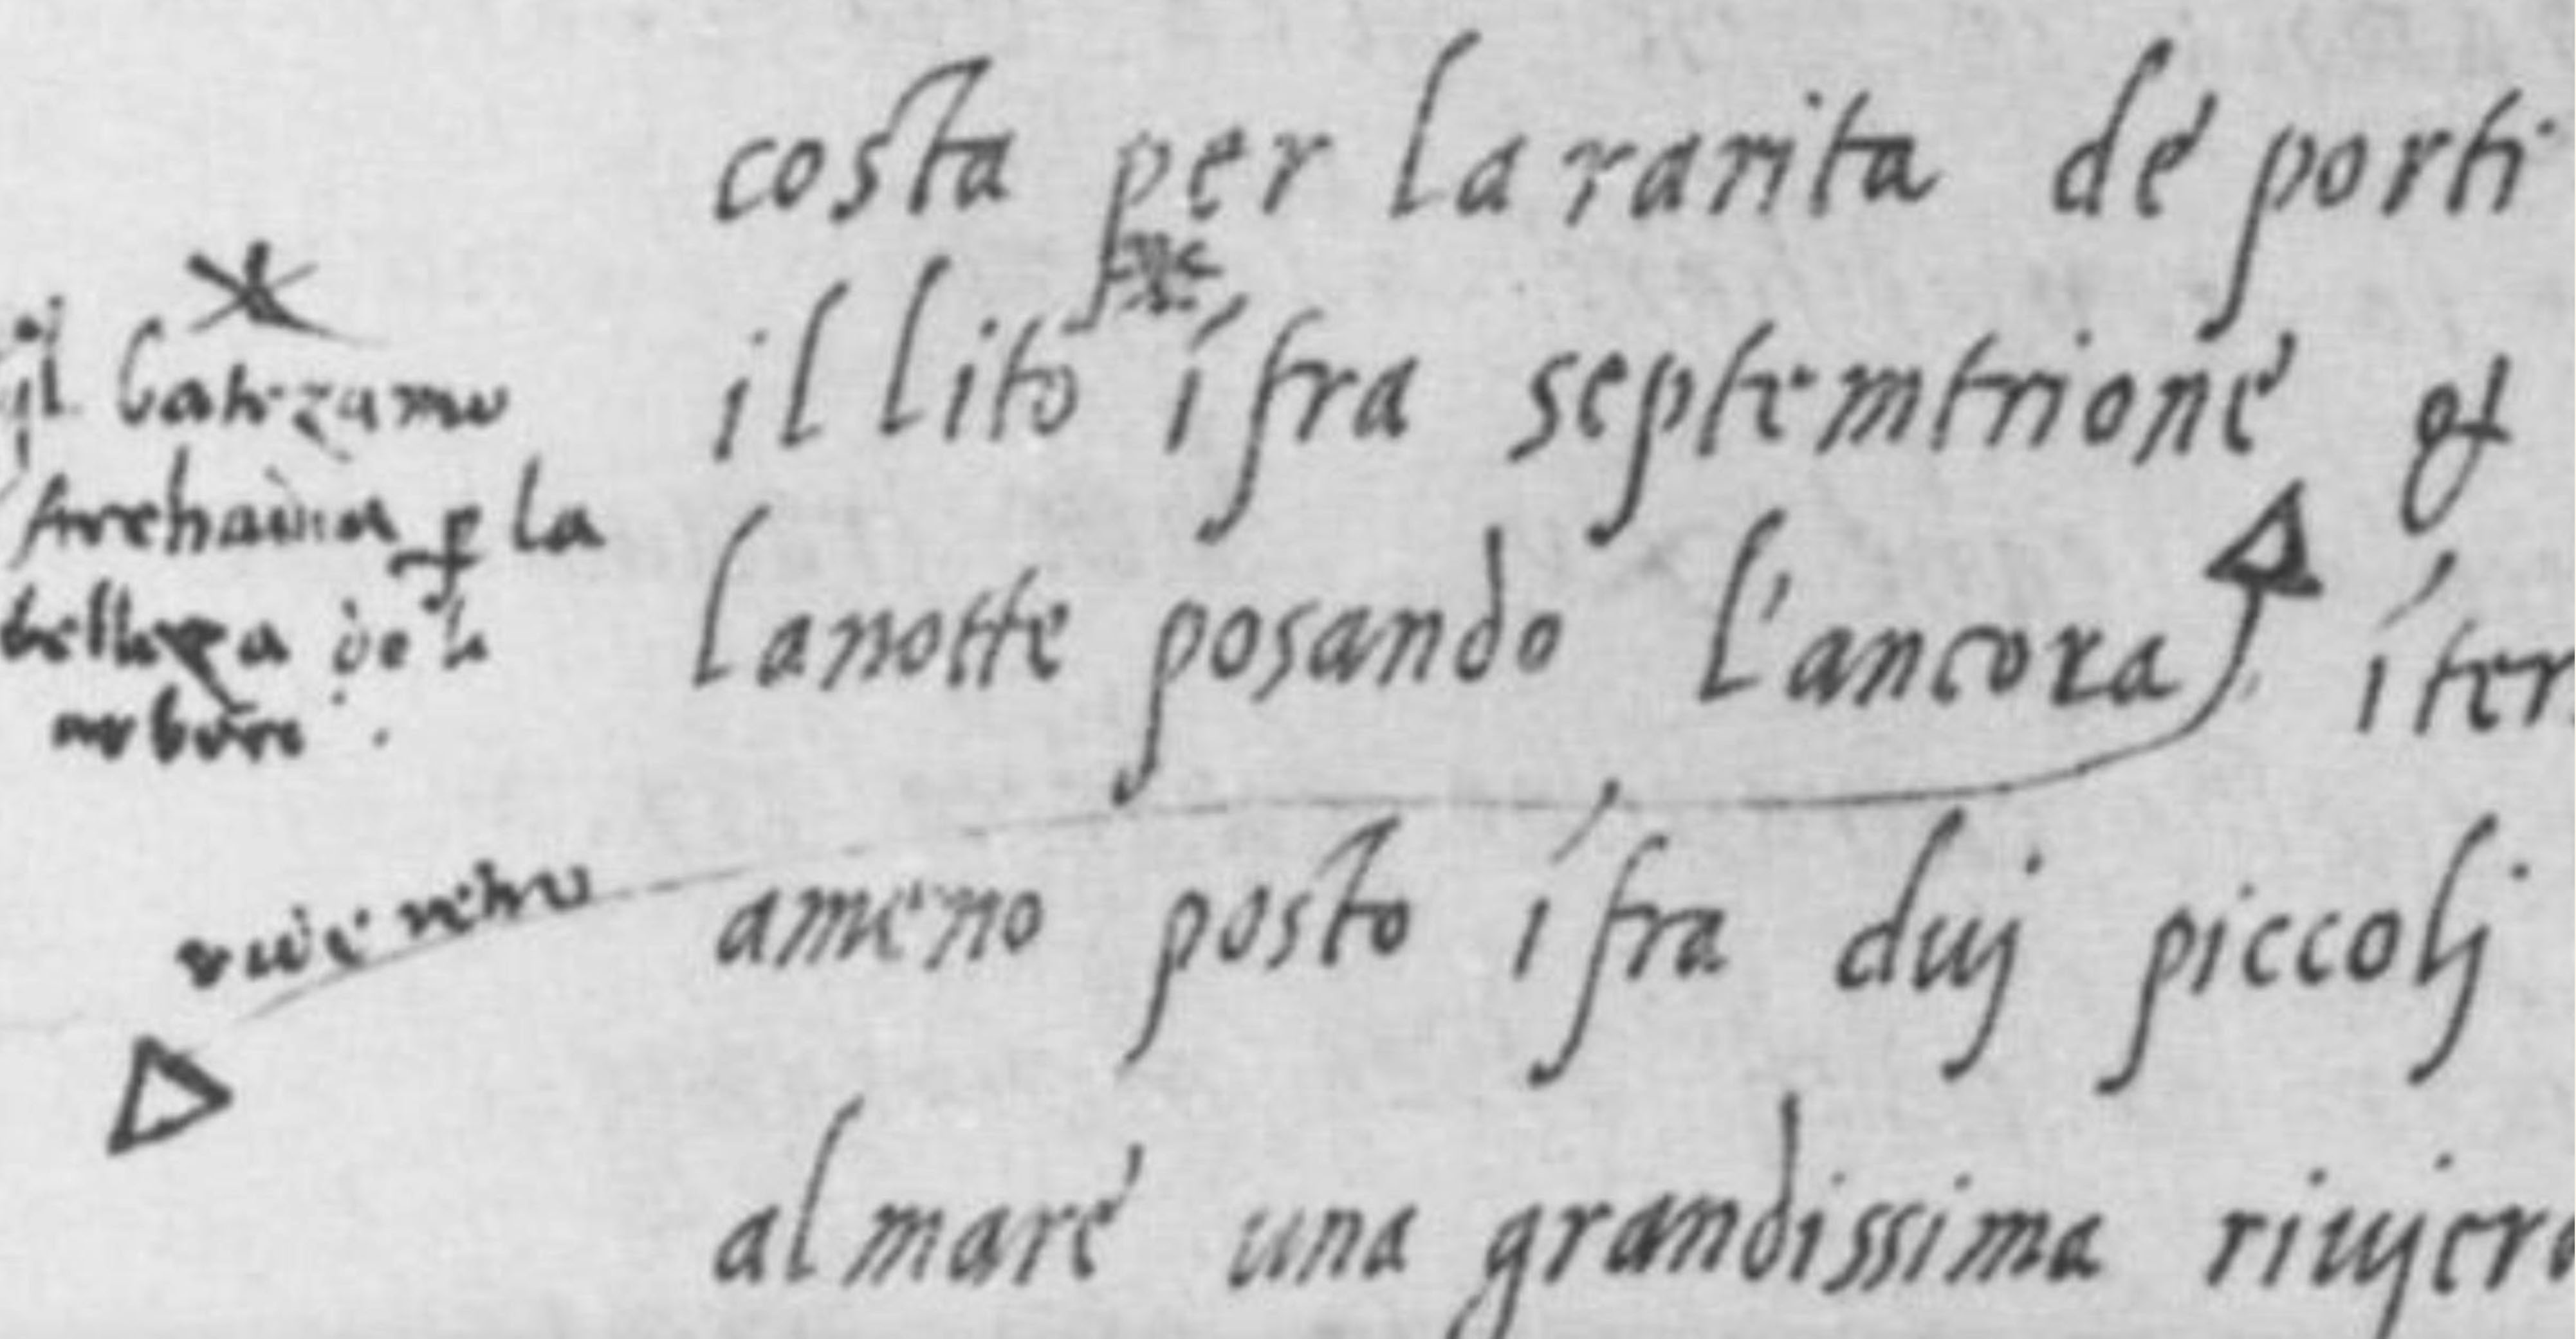 costa per la rarita de porti
il lito ífra septemtrione et
la notte posando l'ancora íter
ameno posto ífra duj piccolj
al mare una grandissima riujer
il batezamo
Archadia p la
belleza de li
arbori.
vide retro